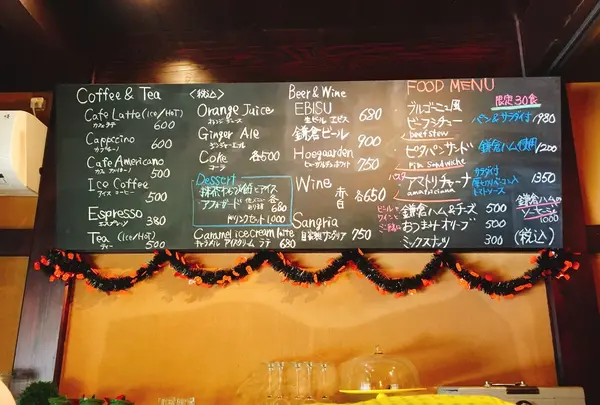 Coffee & Tea
Cafe Latte (ICE/HOT)
カフェラテ 600
Cappccino
カプチーノ 600
Cafe Americano
カフェ アメリカーノ 500
Ice Coffee
アイス コーヒー 500
Espresso
エスプレッソ 380
Tea (Ice/HOT)
ティー 500
<税込>
Orange Juice
オレンジジュース
Ginger Ale
ジンジャーエール
Coke 各500
コーラ
Dessert
アイス
アフォガード
各680
ドリンクセット 1000
Caramel ice Cream latte
キャラメル アイスクリーム ラテ 680
Beer & Wine
EBISU
生ビール エビス 680
鎌倉ビール 900
Hoegaarden
ヒューガルデンホワイト 750
Wine
赤
白 各650
Sangria
自家製サングリア 750
FOOD MENU
限定30食
ブルゴーニュ風
ビーフシチュー
beefstew
パン&サラダ付 1980
ピタパンサンド
Pita Sandwiche
鎌倉ハム使用 1200
パスタ
アマトリチャーナ
amatriciana
サラダ付
1350
ビールと
ワインと
ご一緒に
鎌倉ハム&チーズ 500
おつまみオリーブ 500
ミックスナッツ 300
鎌倉ハムの
ソーセージ
1000
(税込)